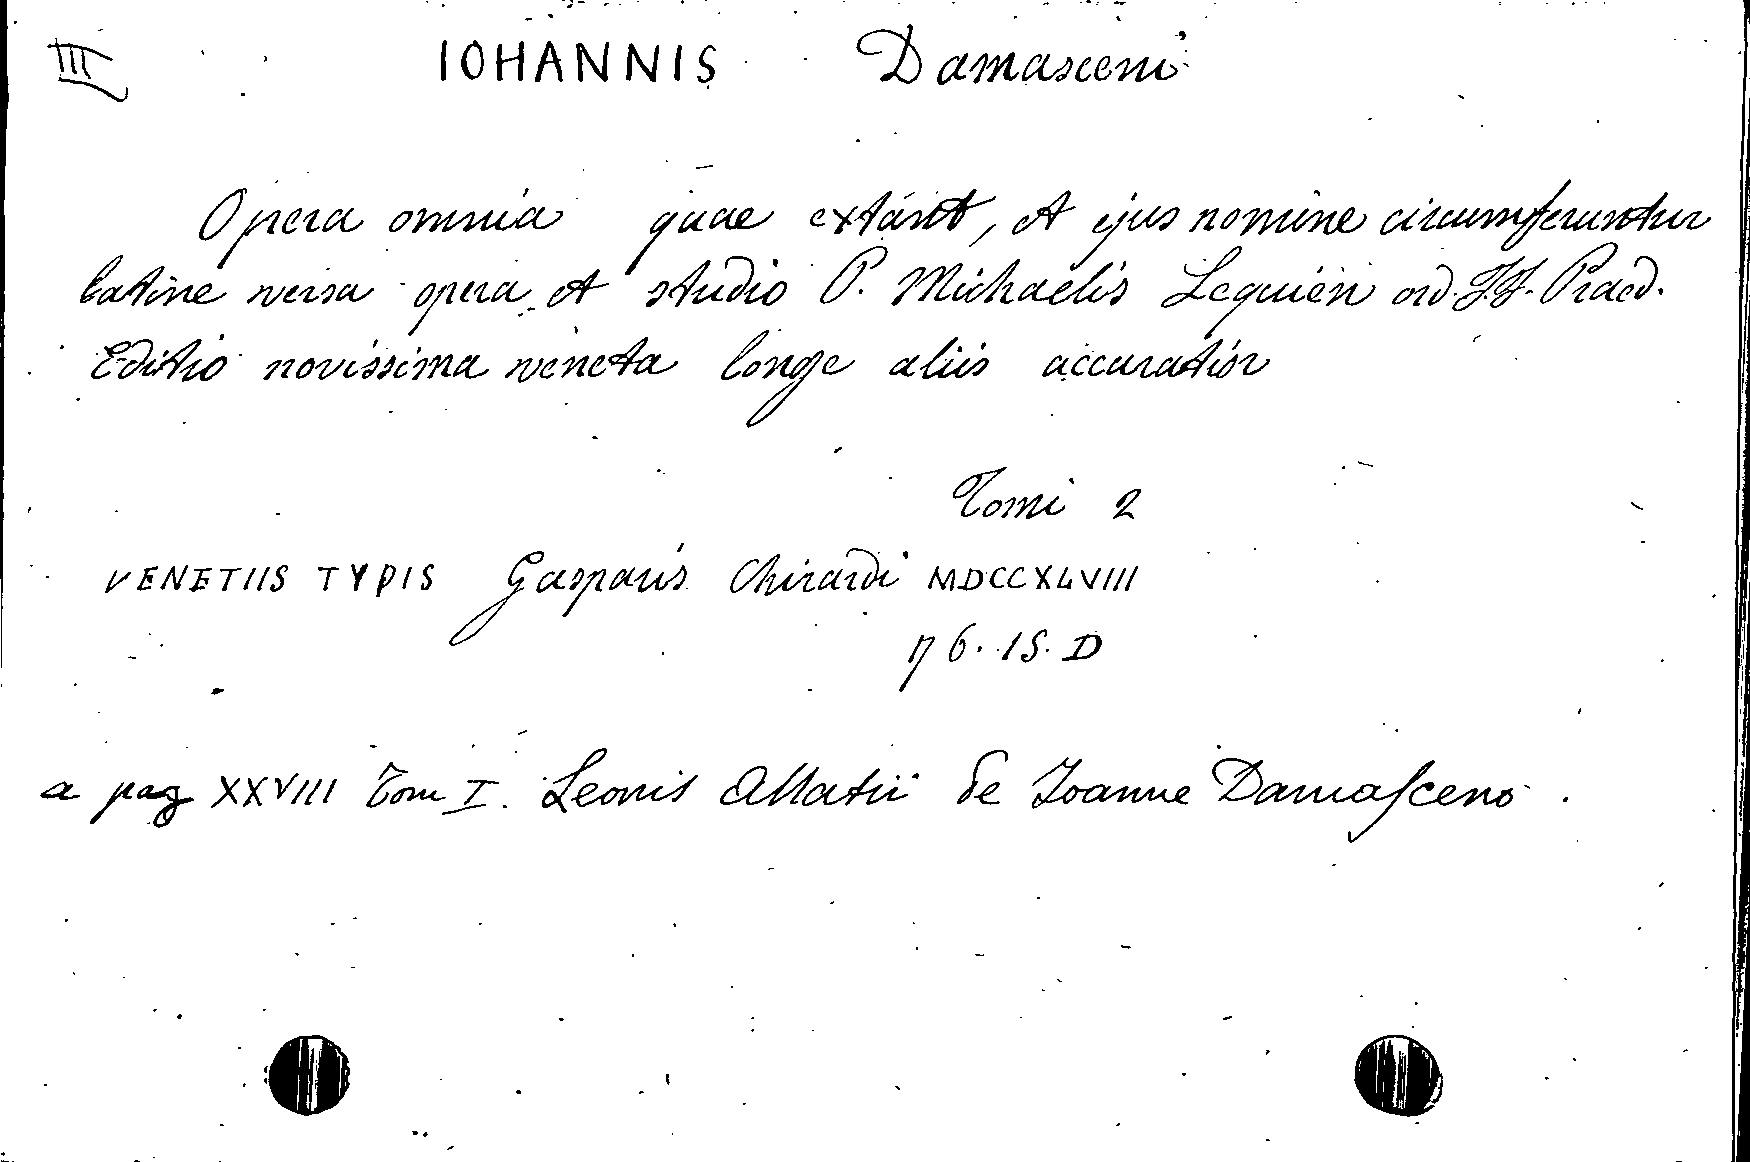 III IOHANNIS Damasceni
Opera omnia quae extant, et ejus nomine circumferuntur
latine versa opera et studio P. Michaelis Lequien ord. FF. Praed.
Editio novissima veneta longe aliis accuratior
Tomi 2
VENETIIS TYPIS Gasparis Ghirardi MDCCXLVIII
76. 15. D
a pag XXVIII Tom I. Leonis Allatii de Joanne Damasceno.